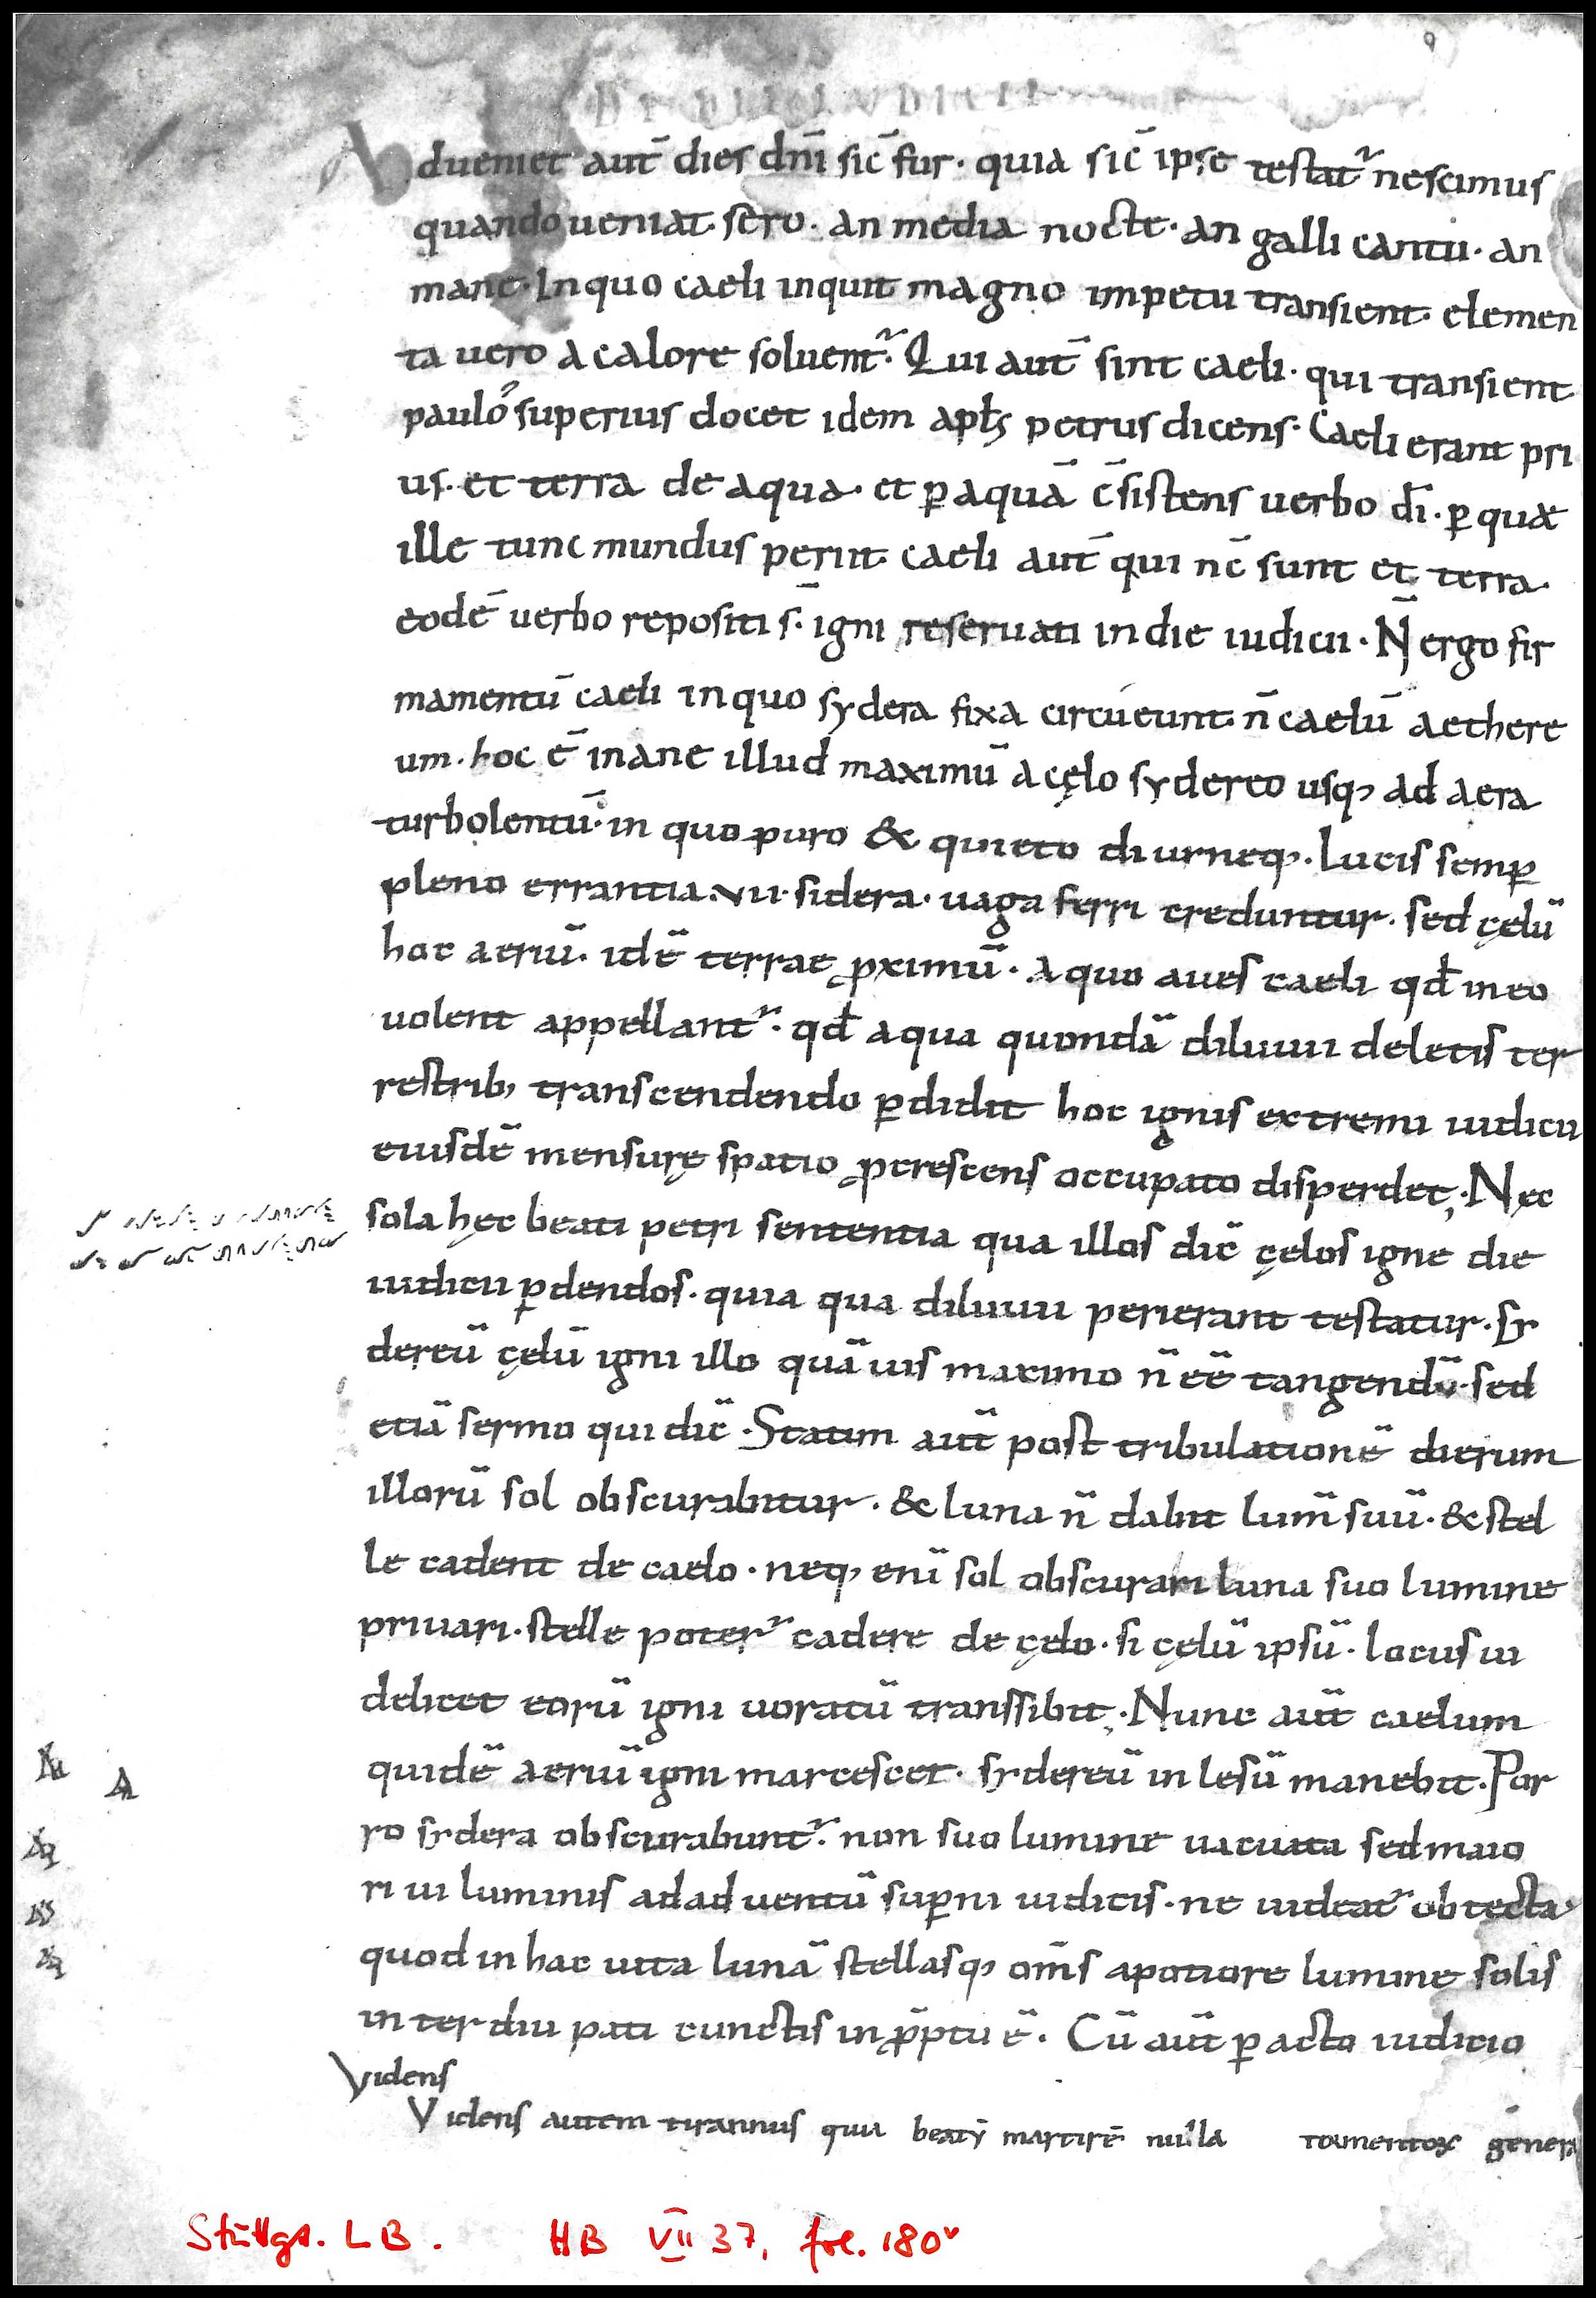 DE DIE IUDICII
Adueniet aut̄ dies dn̄i sic̄ fur · quia sic̄ ipse testat᷑ nescimus
quando ueniat · sero · an media nocte · an galli cantu · an
mane · In quo caeli inquit magno impetu transient · elemen
ta uero a calore soluent᷑ · Qui aut̄ sint caeli · qui transient
paulo superius docet idem apłs petrus dicens · Caeli erant pri
us · et terra de aqua · et ꝑ aquā c̄sistens uerbo dī · ꝑ quae
ille tunc mundus periit · caeli aut̄ qui nc̄ sunt et terra ·
eodē uerbo repositi s̄ · igni reseruati in die iudicii · N̄ ergo fir
mamentū caeli in quo sydera fixa circueunt · n̄ caelū aethere
um · hoc ē inane illud maximū a cęlo sydereo usq; ad aera
turbolentū · in quo puro & quieto diurneq; · lucis semꝑ
pleno errantia · VII · sidera · uaga ferri creduntur · sed cęlū
hoc aeriū · idē terrae ꝓximū · a quo aues caeli qđ in eo
uolent appellant᷑ · qđ aqua quondā diluuii deletis ter
restrib; transcendendo ꝑdidit hoc ignis extremi iudicii
eiusdē mensurę spatio ꝓcrescens occupato disperdet ; Nec
sola hęc beati petri sententia qua illos dic̄ cęlos igne die
iudicii ꝑdendos · quia qua diluuii perierant testatur · sy
dereū cęlū igni illo quāuis maximo n̄ eē tangendū · sed
etiā sermo qui dic̄ · Statim aut̄ post tribulationē dierum
illorū sol obscurabitur · & luna n̄ dabit lum̄ suū · & stel
le cadent de caelo · neq; enī sol obscurari luna suo lumine
priuari · stelle poter᷑ cadere de cęlo · si cęlū ipsū · locus ui
delicet eorū igni uoratū transsibit ; Nunc aut̄ caelum
quidē aeriū igni marcescet · sydereū inlesū manebit · Por
ro sydera obscurabunt᷑ · non suo lumine uacuata sed maio
ri ui luminis ad aduentū suꝑni iudicis · ne uideat᷑ obtecta ·
quod in hac uita lunā stellasq; om̄s a potiore lumine solis
inter diu pati cunctis in ꝓ̄ptu ē · Cū aut̄ ꝑacto iudicio
Videns
Videns autem tirannus quia beatū martirē nulla tormentoꝝ genera
Stuttgt. LB. HB VII 37, fol. 180ᵛ